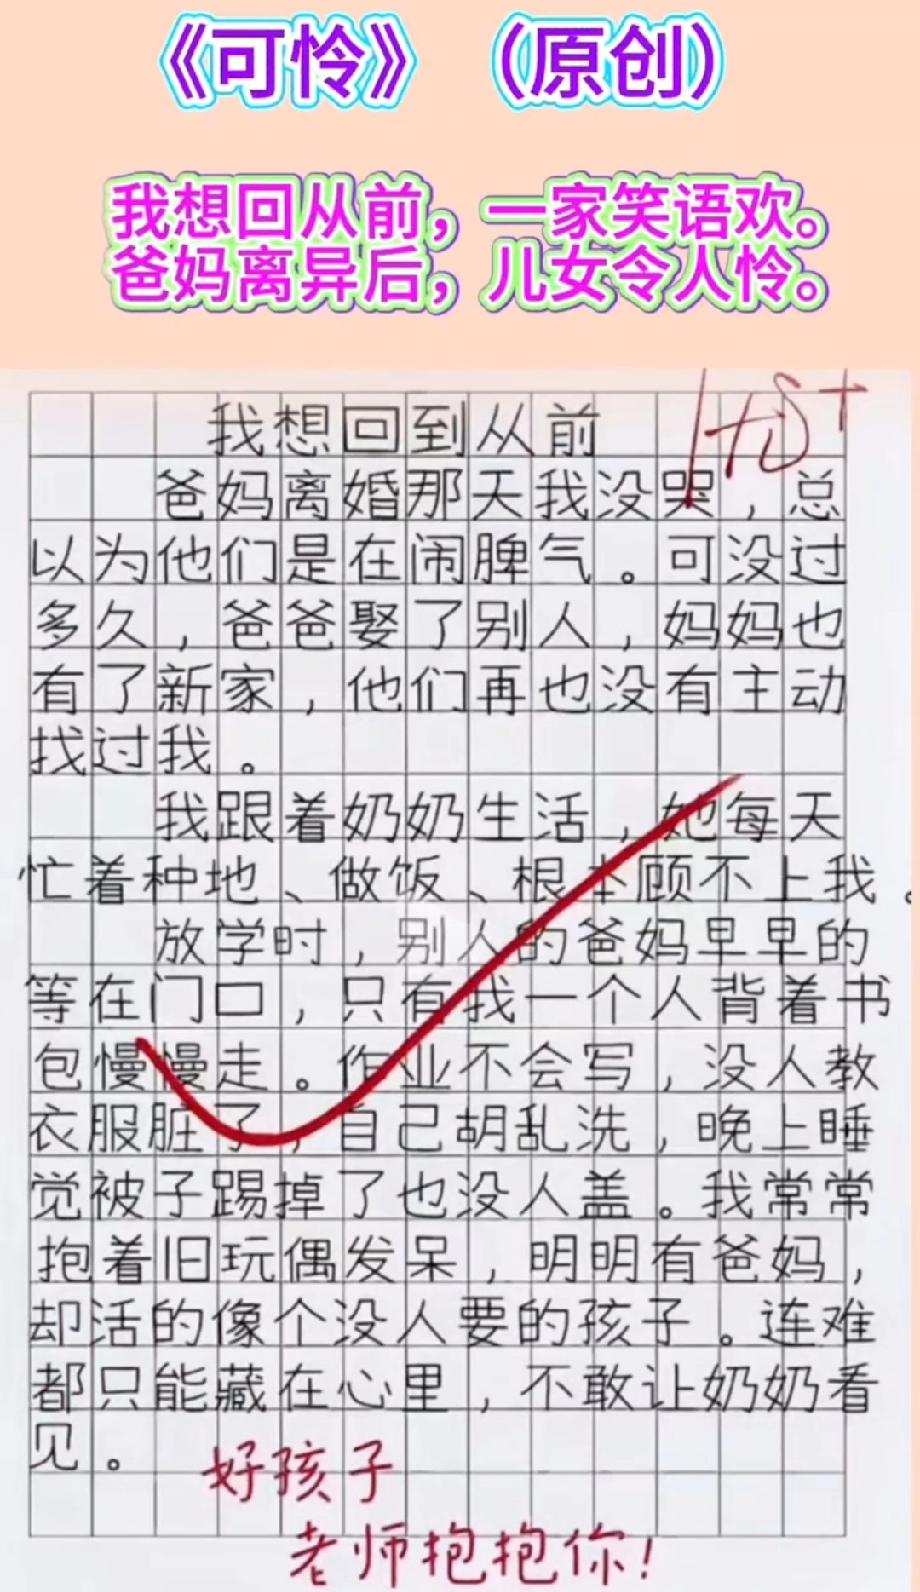 《可怜》（原创）
我想回从前，一家笑语欢。
爸妈离异后，儿女令人怜。
优+
我想回到从前
爸妈离婚那天我没哭，总
以为他们是在闹脾气。可没过
多久，爸爸娶了别人，妈妈也
有了新家，他们再也没有主动
找过我。
我跟着奶奶生活，她每天
忙着种地、做饭、根本顾不上我。
放学时，别人的爸妈早早的
等在门口，只有我一个人背着书
包慢慢走。作业不会写，没人教
衣服脏了，自己胡乱洗，晚上睡
觉被子踢掉了也没人盖。我常常
抱着旧玩偶发呆，明明有爸妈，
却活的像个没人要的孩子。连难
都只能藏在心里，不敢让奶奶看
见。
好孩子
老师抱抱你！